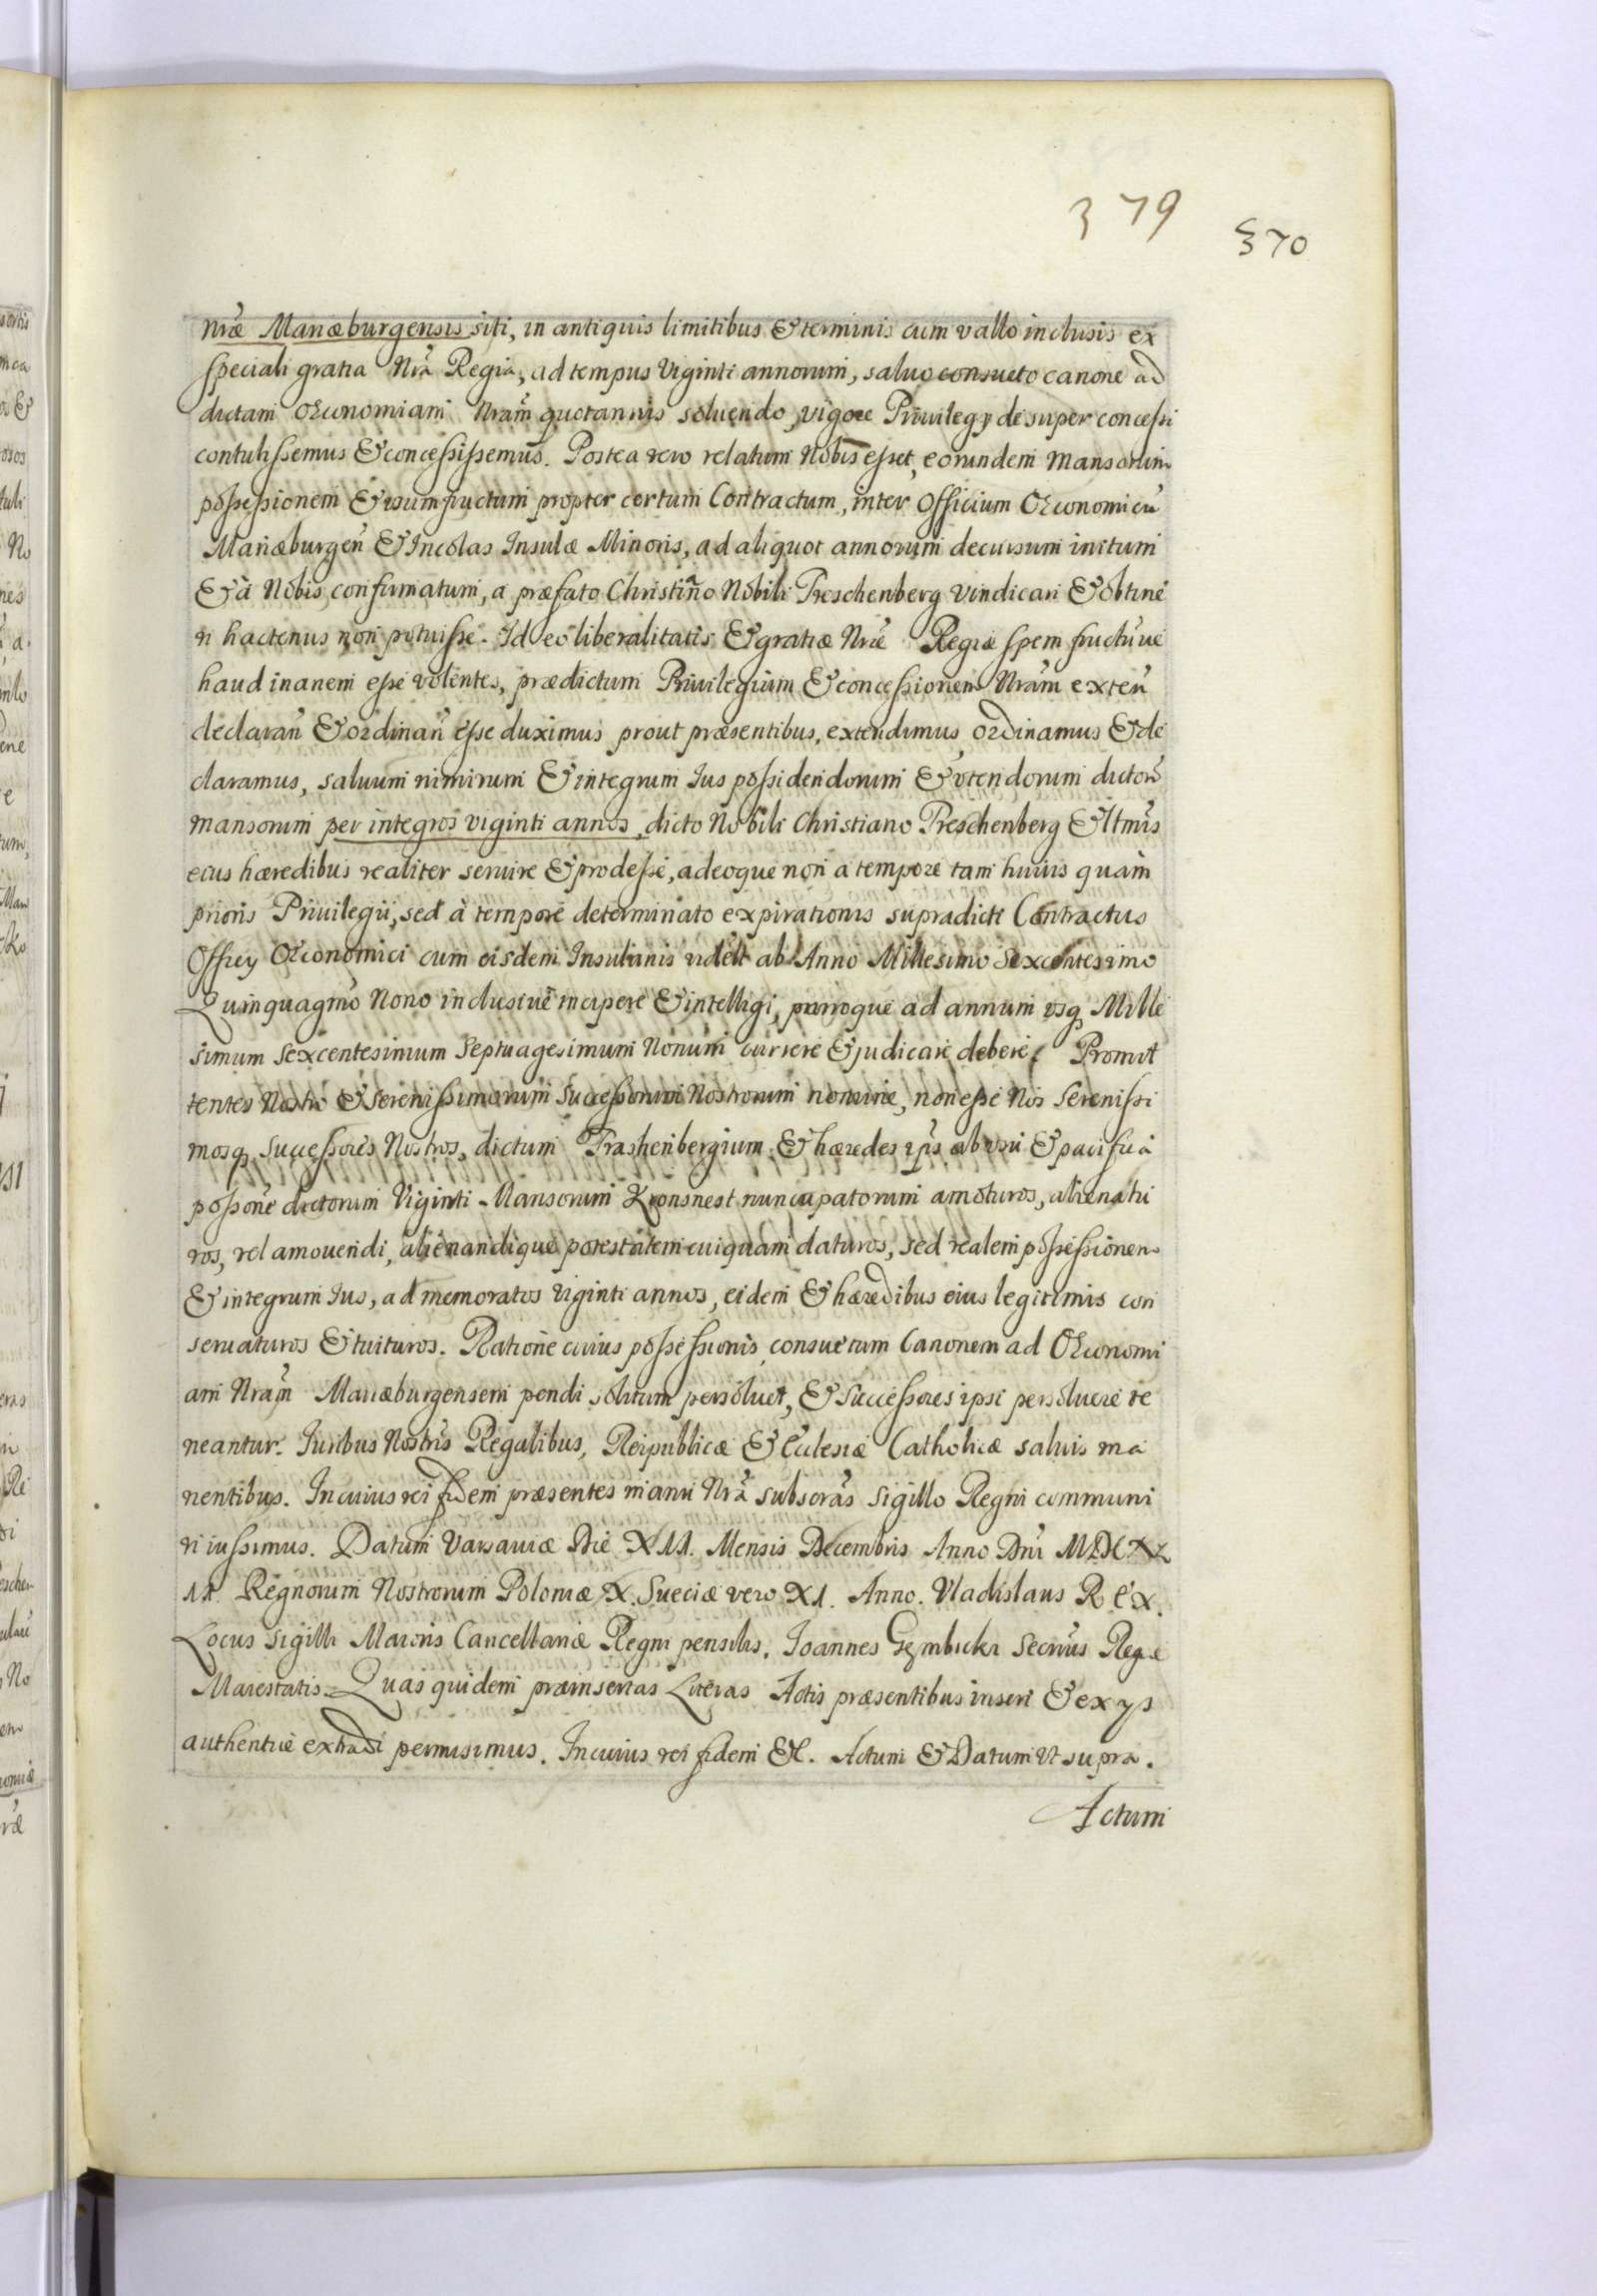 379
370
nræ Mariæburgensis siti, in antiquis limitibus & terminis cum vallo inclusis ex
speciali gratia Nrã Regia, ad tempus Viginti annorum, saluo consueto canone ad
dictam Oeconomiam Nram quotannis soluendo, vigore Priuilegy desuper concessi
contulissemus & concessissemus. Postea vero relatum Nobis esset, eorundem Mansorum
possessionem & usumfructum propter certum Contractum, inter Officium Oeconomicũ
Mariæburgeñ & Incolas Insulæ Minoris, ad aliquot annorum decursum initum
& à Nobis confirmatum, a præfato Christiãno Nobili Preschenberg vindicari & obtine
ri hactenus non potuisse. Ideo liberalitatis & gratiæ Nræ Regiæ spem fructũue
haud inanem esse volentes, prædictum Priuilegium & concessionem Nram exteñ
declarañ & ordinañ esse duximus prout præsentibus, extendimus, ordinamus & de
claramus, saluum nimirum & integrum Ius possidendorum & vtendorum dictorũ
mansorum per integros viginti annos, dicto Nobili Christiano Preschenberg & ltmis
eius hæredibus realiter seruire & prodesse, adeoque non a tempore tam huius quam
prioris Priuilegii, sed à tempore determinato expirationis supradicti Contractus
Officy Oeconomici cum eisdem Insulanis videlt ab Anno Millesimo Sexcentesimo
Quinquagmo Nono inclusiuè incipere & intelligi, porroque ad annum vsq Mille
simum Sexcentesimum Septuagesimum Nonum currere & judicari debere. Promit
tentes Nostro & Serenissimorum Successorum Nostrorum nomine, non esse Nos Serenissi
mosq successores Nostros, dictum Prashenbergium & hæredes ipsĩs ab usu & pacifica
possone dictorum Viginti Mansorum Kronsnest nuncupatorum amoturos, alienatu
ros, vel amouendi, alienandique potestatem cuiquam daturos, sed realem possessionem
& integrum Ius, ad memoratos viginti annos, eidem & hæredibus eius legitimis con
seruaturos & tuituros. Ratione cuius possessionis, consuetum Canonem ad Oeconomi
am Nram Mariæburgensem pendi solitum persoluet, & Successores ipsi persoluere te
neantur. Iuribus Nostris Regalibus, Reipublicæ & Ecclesiæ Catholicæ saluis ma
nentibus. In cuius rei fidem præsentes manu Nrã subscrãs Sigillo Regni communi
ri iussimus. Datum Varsauiæ Die XII. Mensis Decembris Anno Dni MDCXL
II Regnorum Nostrorum Poloniæ X. Sueciæ vero XI. Anno. Vladislaus Rex.
Locus Sigilli Maioris Cancellariæ Regni pensilis. Ioannes Gembicki Secrius Regiæ
Maiestatis. Quas quidem præinsertas Literas Actis præsentibus inseri & ex ys
authenticè extradi permisimus. In cuius rei fidem &c. Actum & Datum Vt supra.
Actum